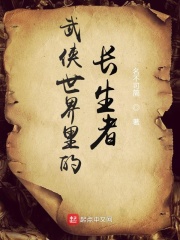 武侠世界里的
长生者
著
起点中文网